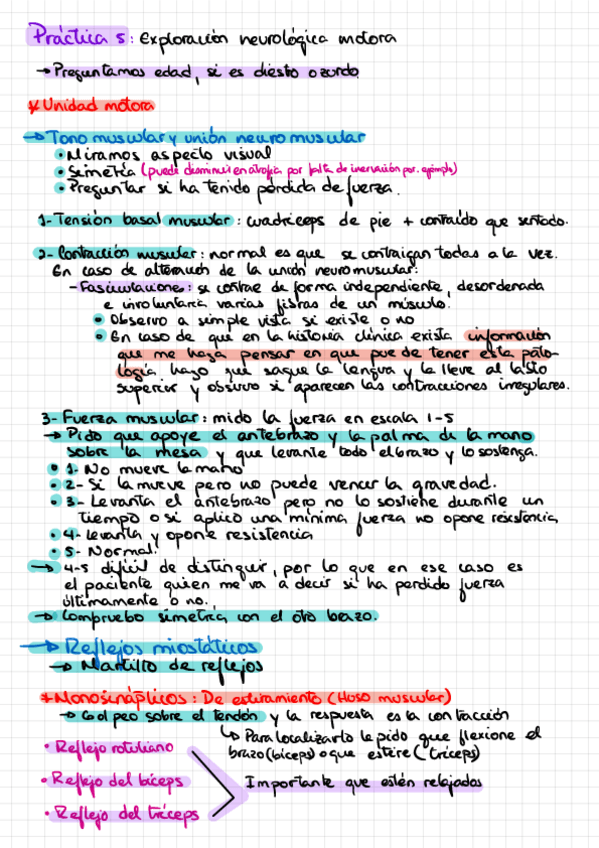 Práctica 5: Exploración neurológica motora
→ Preguntamos edad, si es diestro o zurdo
* Unidad motora
→ Tono muscular y unión neuromuscular
• Miramos aspecto visual
• Simetría (puede disminuir en atrofia por falta de inervación por. ejemplo)
• Preguntar si ha tenido pérdida de fuerza.
1- Tensión basal muscular: cuadriceps de pie + contraido que sentado.
2- Contracción muscular: normal es que se contraigan todas a la vez.
En caso de alteración de la unión neuromuscular:
- Fasciculaciones: se contrae de forma independiente, desordenada
e involuntaria varias fibras de un músculo.
• Observo a simple vista si existe o no
• En caso de que en la historia clínica exista información
que me haga pensar en que puede tener esta pato-
logía hago que saque la lengua y la lleve al labio
superior y observo si aparecen las contracciones irregulares.
3- Fuerza muscular: mido la fuerza en escala 1-5
→ Pido que apoye el antebrazo y la palma de la mano
sobre la mesa y que levante todo el brazo y lo sostenga.
• 1- No mueve la mano
• 2- Si la mueve pero no puede vencer la gravedad.
• 3- Levanta el antebrazo pero no lo sostiene durante un
tiempo o si aplico una mínima fuerza no opone resistencia
• 4- Levanta y opone resistencia
• 5- Normal.
→ 4-5 difícil de distinguir, por lo que en ese caso es
el paciente quien me va a decir si ha perdido fuerza
últimamente o no.
→ Compruebo simetría con el otro brazo.
→ Reflejos miostáticos
→ Martillo de reflejos
* Monosinápticos: De estiramiento (Huso muscular)
→ Golpeo sobre el tendón y la respuesta es la contracción
↳ Para localizarlo le pido que flexione el
brazo (biceps) o que estire (triceps)
• Reflejo rotuliano
• Reflejo del biceps
Importante que estén relajados
• Reflejo del triceps